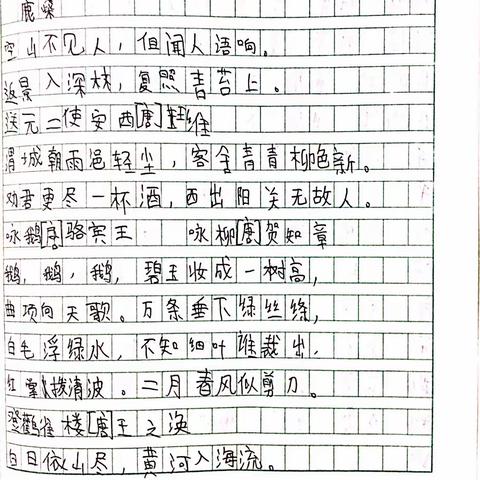 鹿柴
空山不见人，但闻人语响。
返景入深林，复照青苔上。
送元二使安西[唐]王维
渭城朝雨邑轻尘，客舍青青柳色新。
劝君更尽一杯酒，西出阳关无故人。
咏鹅[唐]骆宾王 咏柳[唐]贺知章
鹅，鹅，鹅， 碧玉妆成一树高，
曲项向天歌。万条垂下绿丝绦，
白毛浮绿水，不知细叶谁裁出，
红掌拨清波。二月春风似剪刀。
登鹳雀楼[唐]王之涣
白日依山尽，黄河入海流。